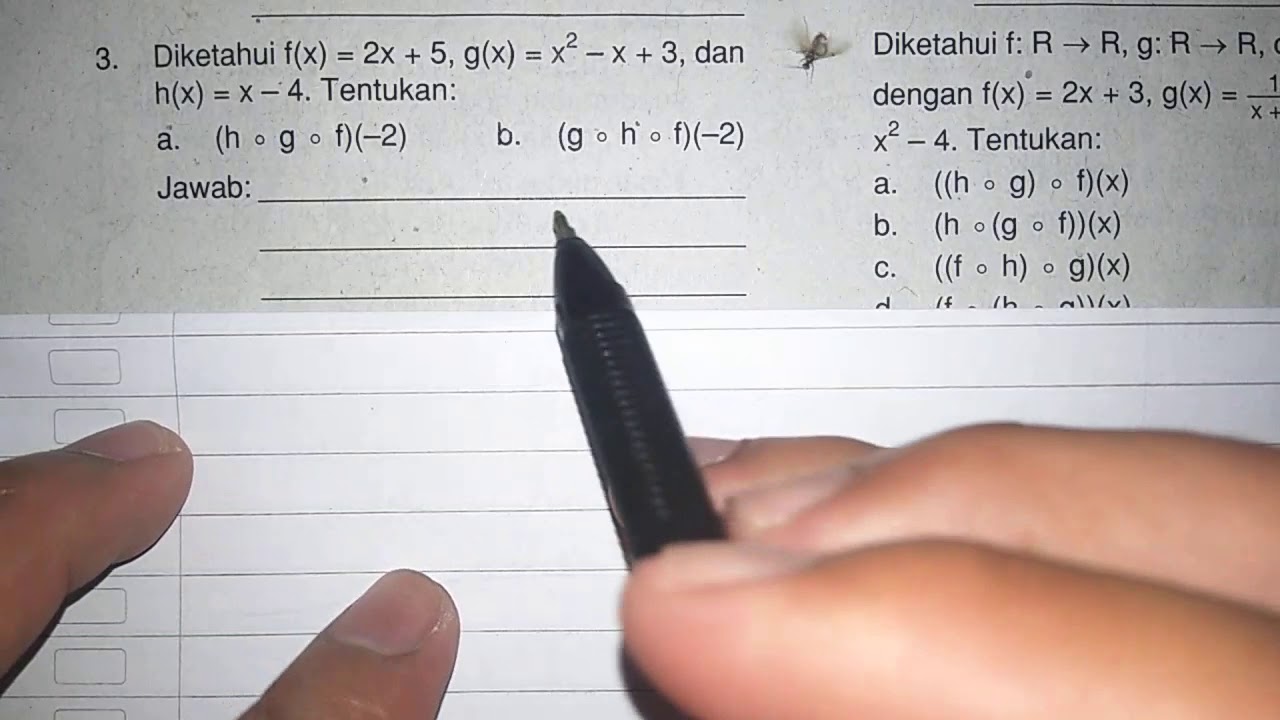 3. Diketahui f(x) = 2x + 5, g(x) = x² – x + 3, dan
h(x) = x – 4. Tentukan:
a. (h ∘ g ∘ f)(–2) b. (g ∘ h ∘ f)(–2)
Jawab:
Diketahui f: R → R, g: R → R,
dengan f(x) = 2x + 3, g(x) = 1/x+
x² – 4. Tentukan:
a. ((h ∘ g) ∘ f)(x)
b. (h ∘ (g ∘ f))(x)
c. ((f ∘ h) ∘ g)(x)